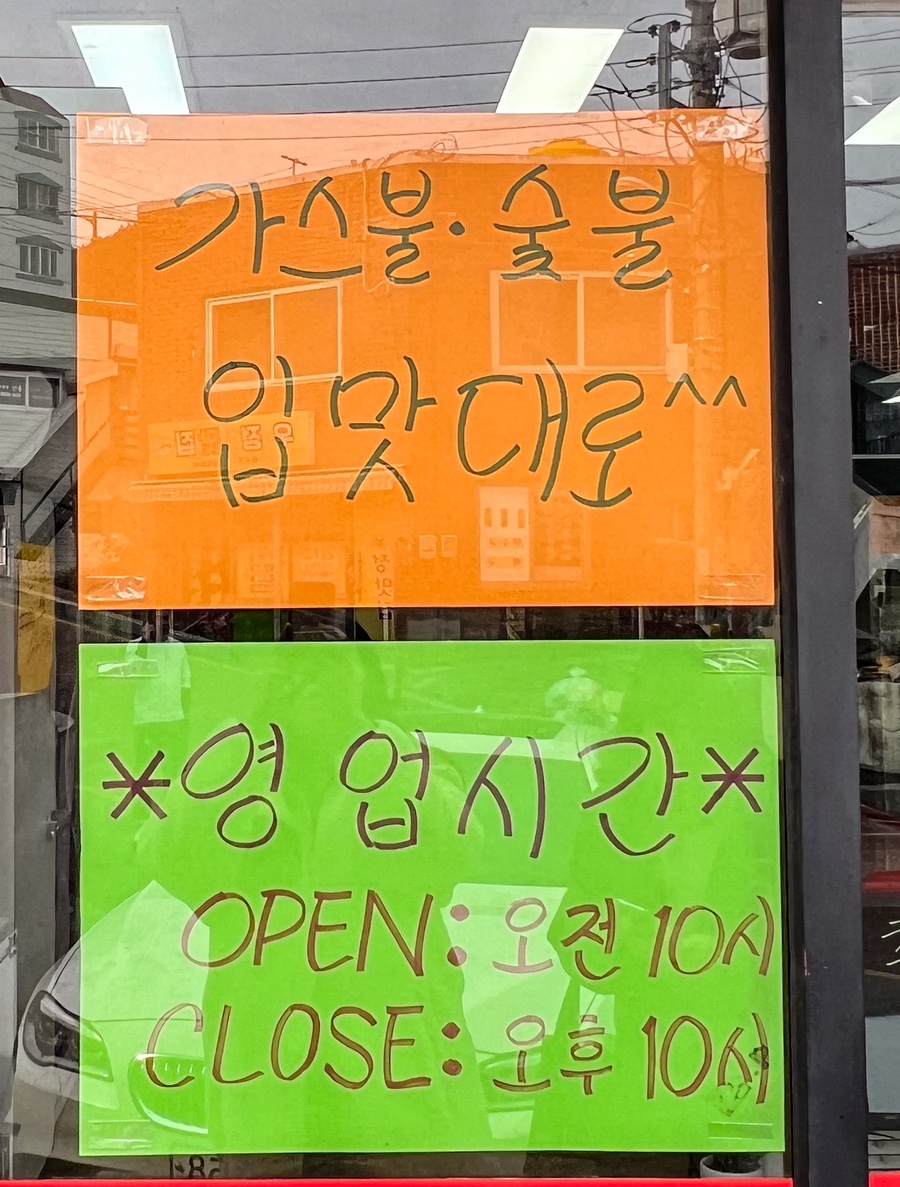 가스불·숯불
입맛대로^^
*영업시간*
OPEN: 오전 10시
CLOSE: 오후 10시